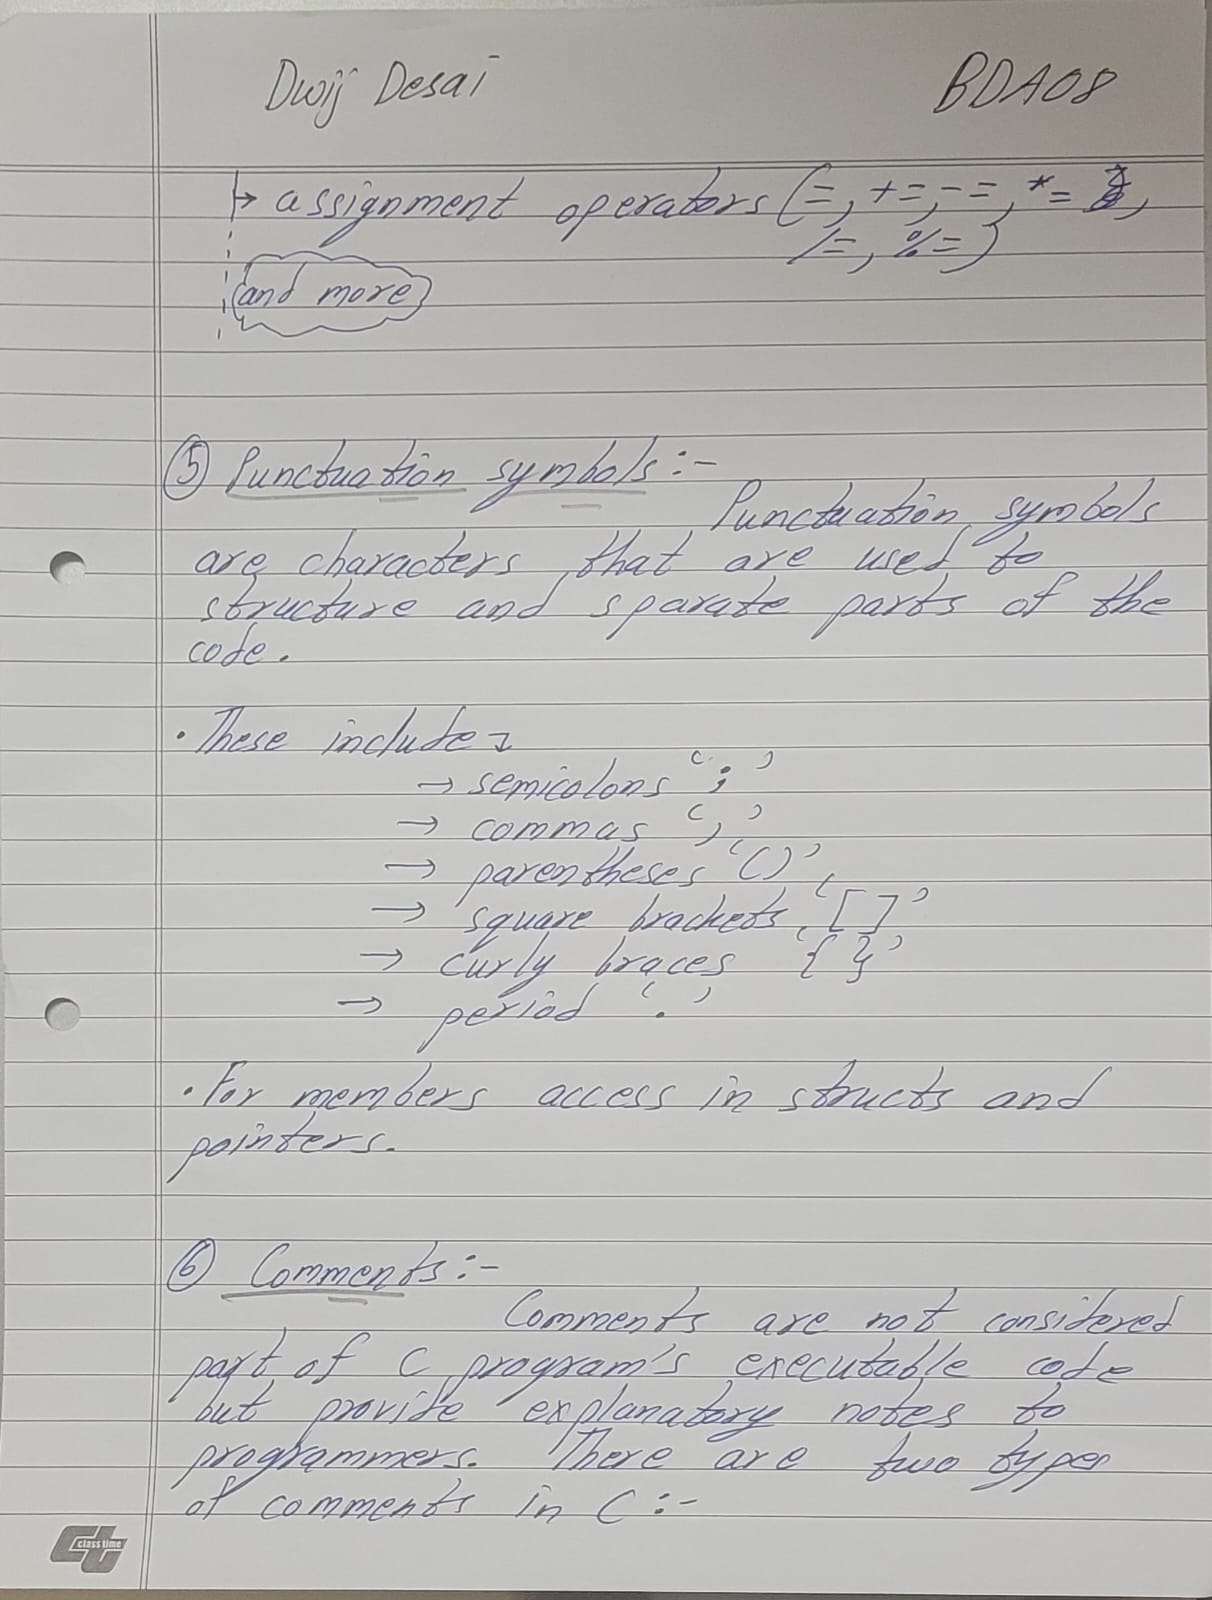 Dwij Desai BDA08
↳ assignment operators (=, +=, -=, *=,
/=, %=)
and more
⑤ Punctuation symbols :-
Punctuation symbols
are characters that are used to
structure and sparate parts of the
code.
• These include
→ semicolons ';'
→ commas ','
→ parentheses '()'
→ square brackets '[]'
→ curly braces '{}'
→ period '.'
• For members access in structs and
pointers.
⑥ Comments :-
Comments are not considered
part of C program's executable code
but provide explanatory notes to
programmers. There are two types
of comments in C :-
class time